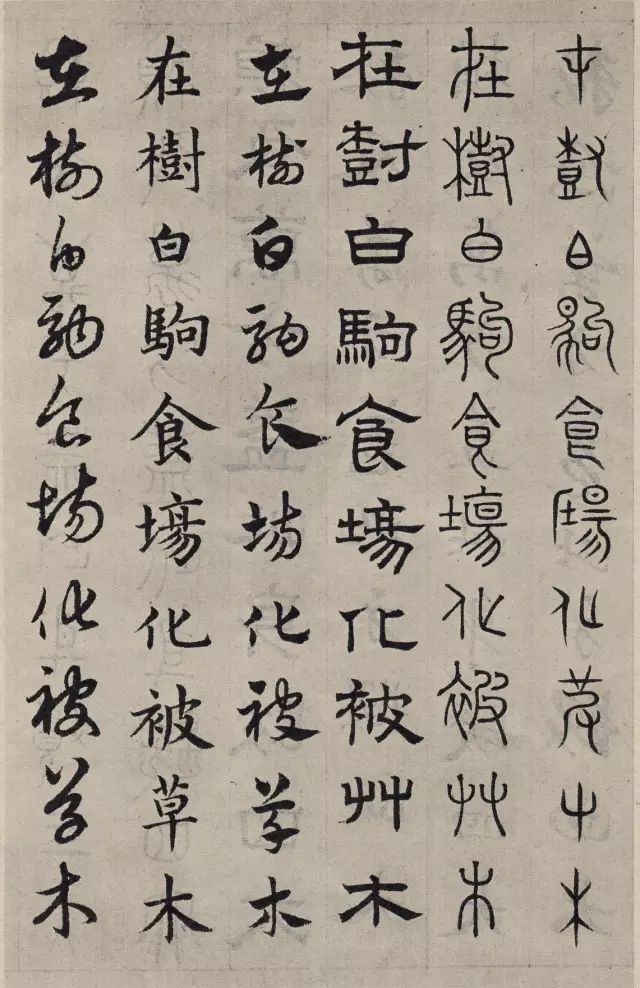 在樹白駒食場化被草木
在樹白駒食場化被艸木
在尌白駒食場化被艸木
在樹白駒食場化被草木
在樹白駒食場化被草木
在樹白駒食場化被草木